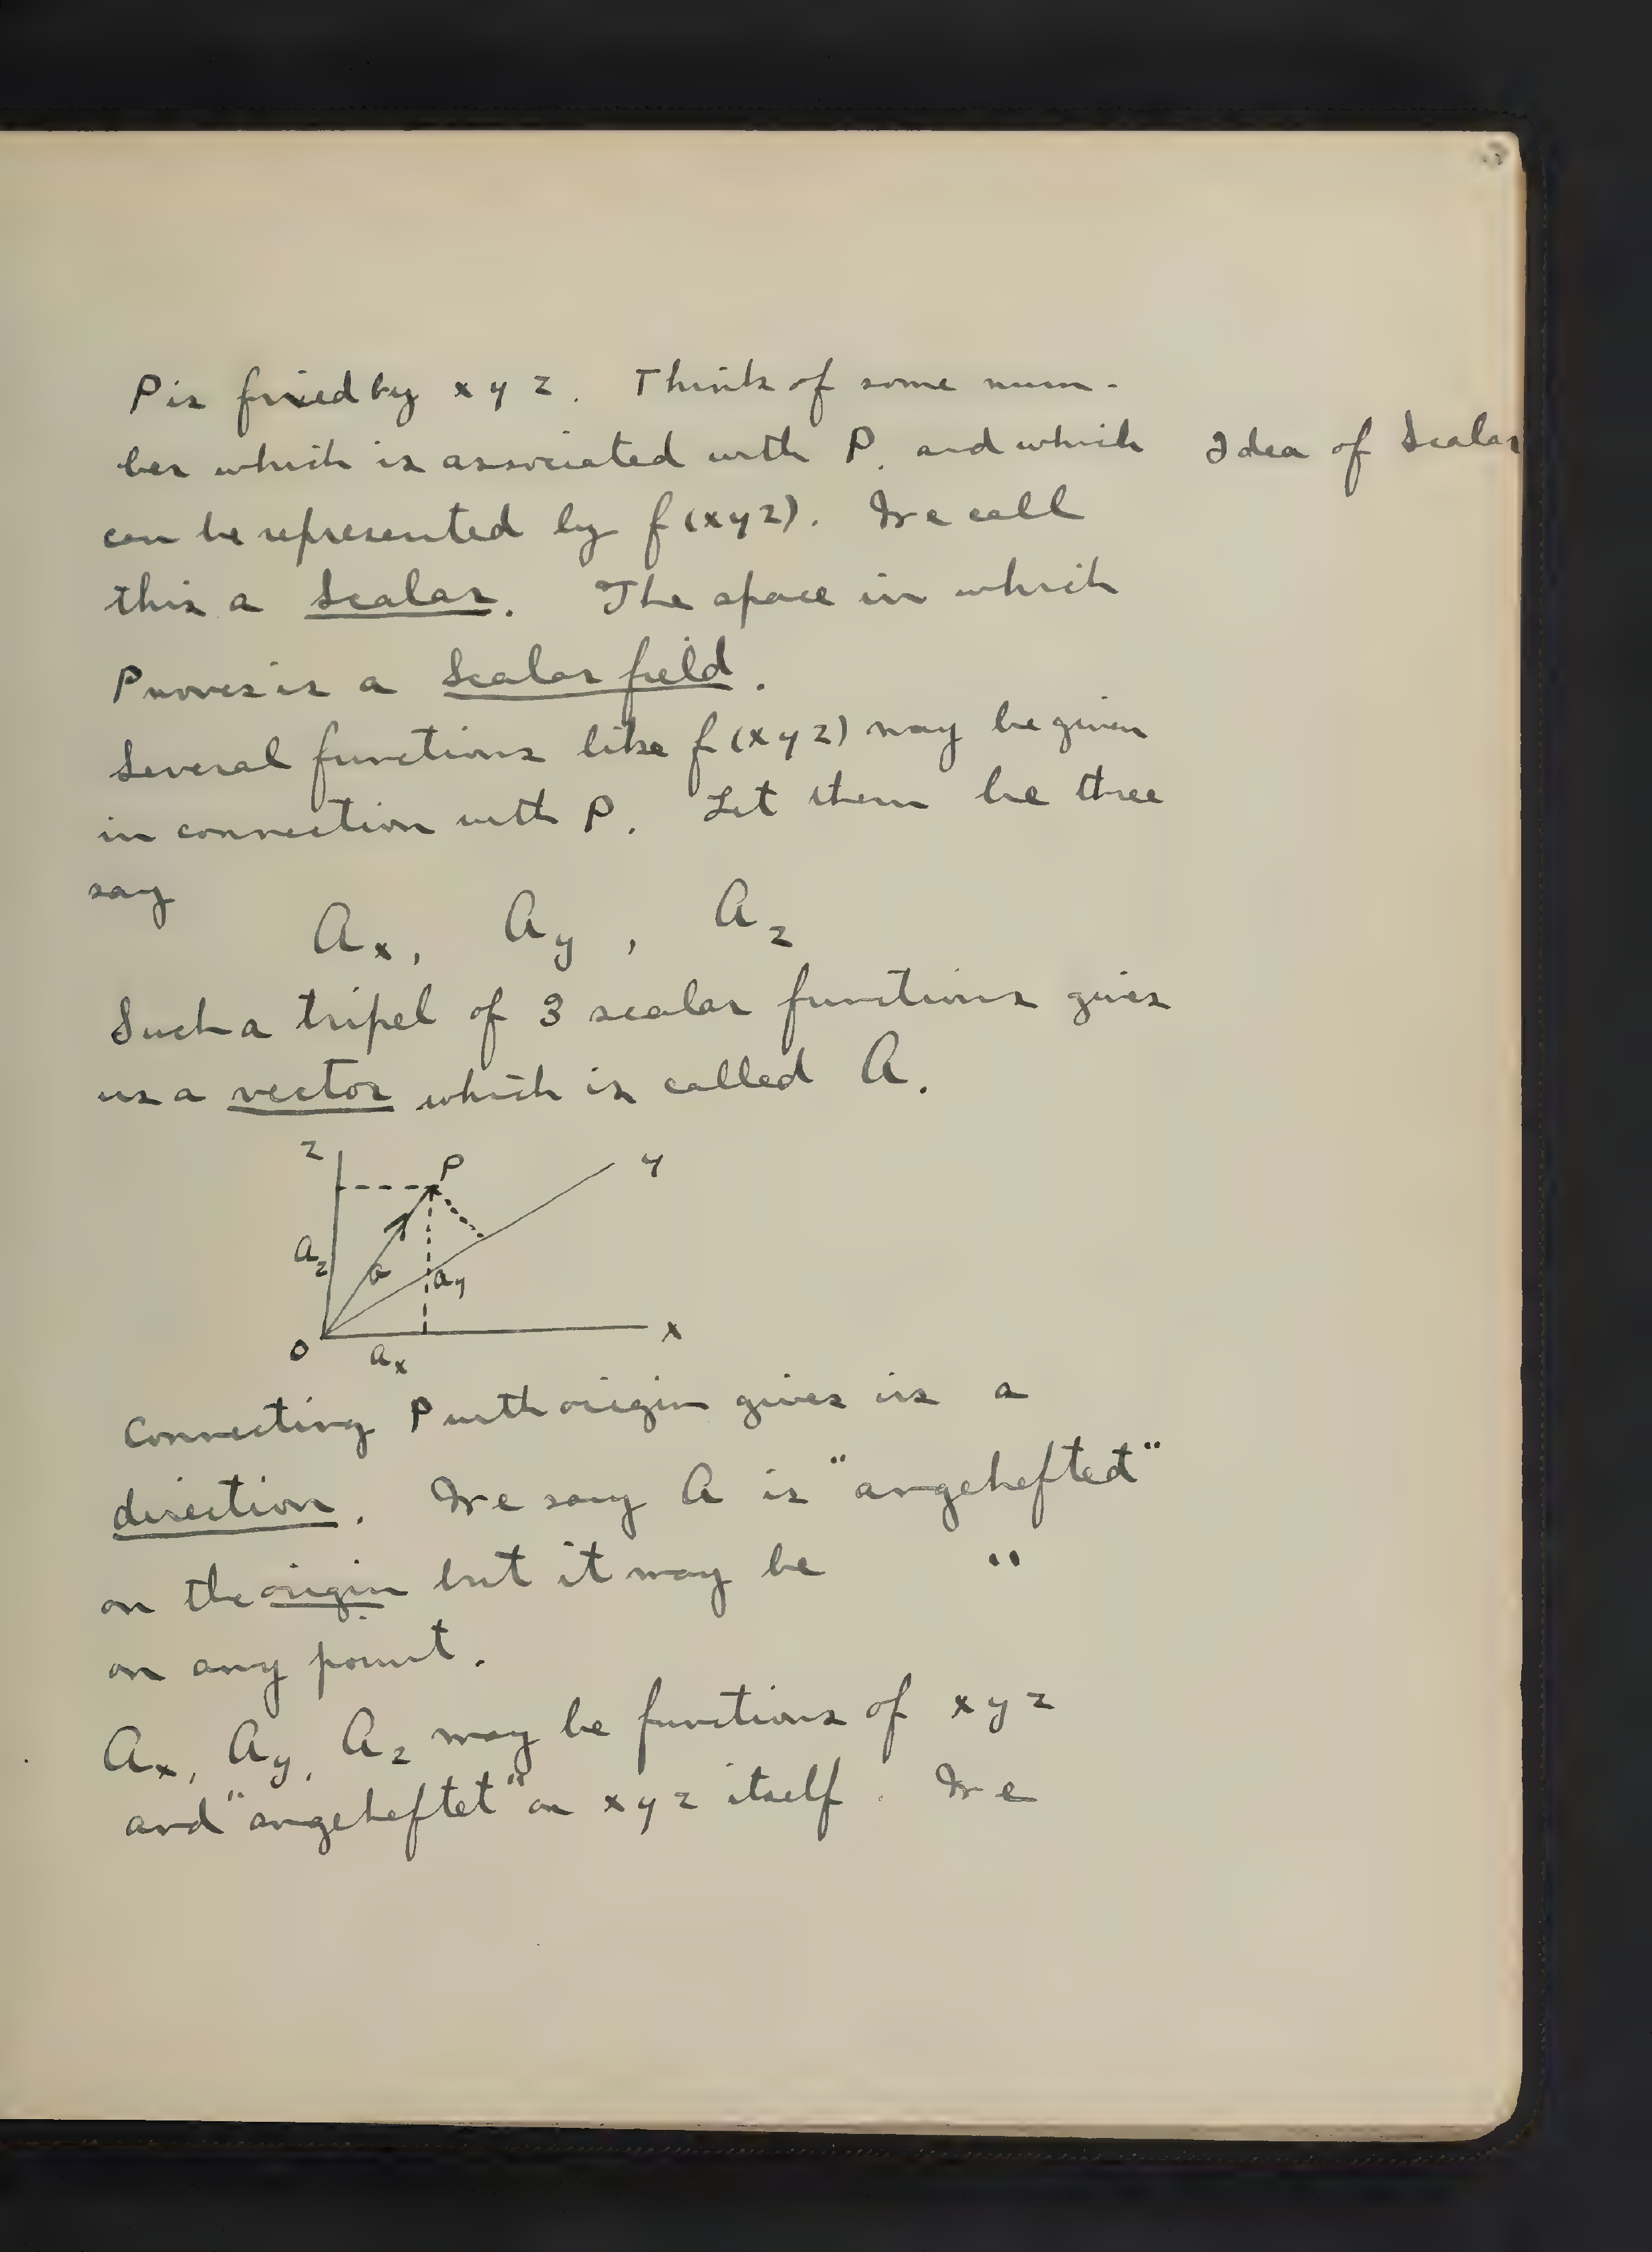 P is fixed by x y z. Think of some num-
ber which is associated with P. and which
Idea of Scalar
can be represented by f(xyz). We call
this a Scalar. The space in which
P moves is a Scalar field.
Several functions like f(xyz) may be given
in connection with P. Let them be three
say
Ax, Ay, Az
Such a tripel of 3 scalar functions gives
us a vector which is called A.
z
P
y
Az
a
ay
x
O
ax
Connecting P with origin gives us a
direction. We say A is "angehefted"
on the origin but it may be "
on any point.
Ax, Ay, Az may be functions of x y z
and "angeheftet" on x y z itself. We